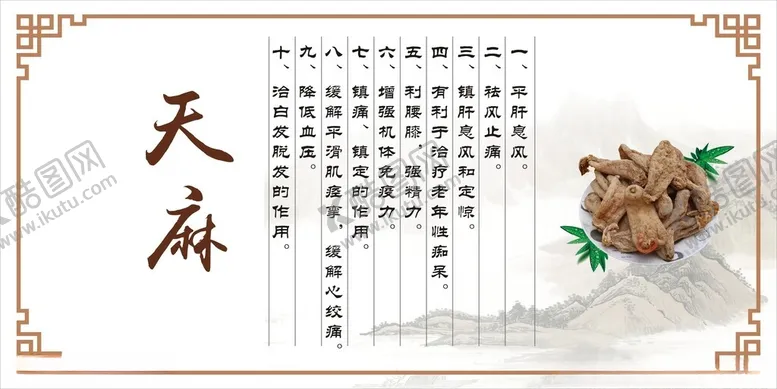 天麻
一、平肝息风。
二、祛风止痛。
三、镇肝息风和定惊。
四、有利于治疗老年性痴呆。
五、利腰膝、强精力。
六、增强机体免疫力。
七、镇痛、镇定的作用。
八、缓解平滑肌痉挛，缓解心绞痛。
九、降低血压。
十、治白发脱发的作用。
酷图网
www.ikutu.com
酷图网
www.ikutu.com
酷图网
www.ikutu.com
酷图网
www.ikutu.com